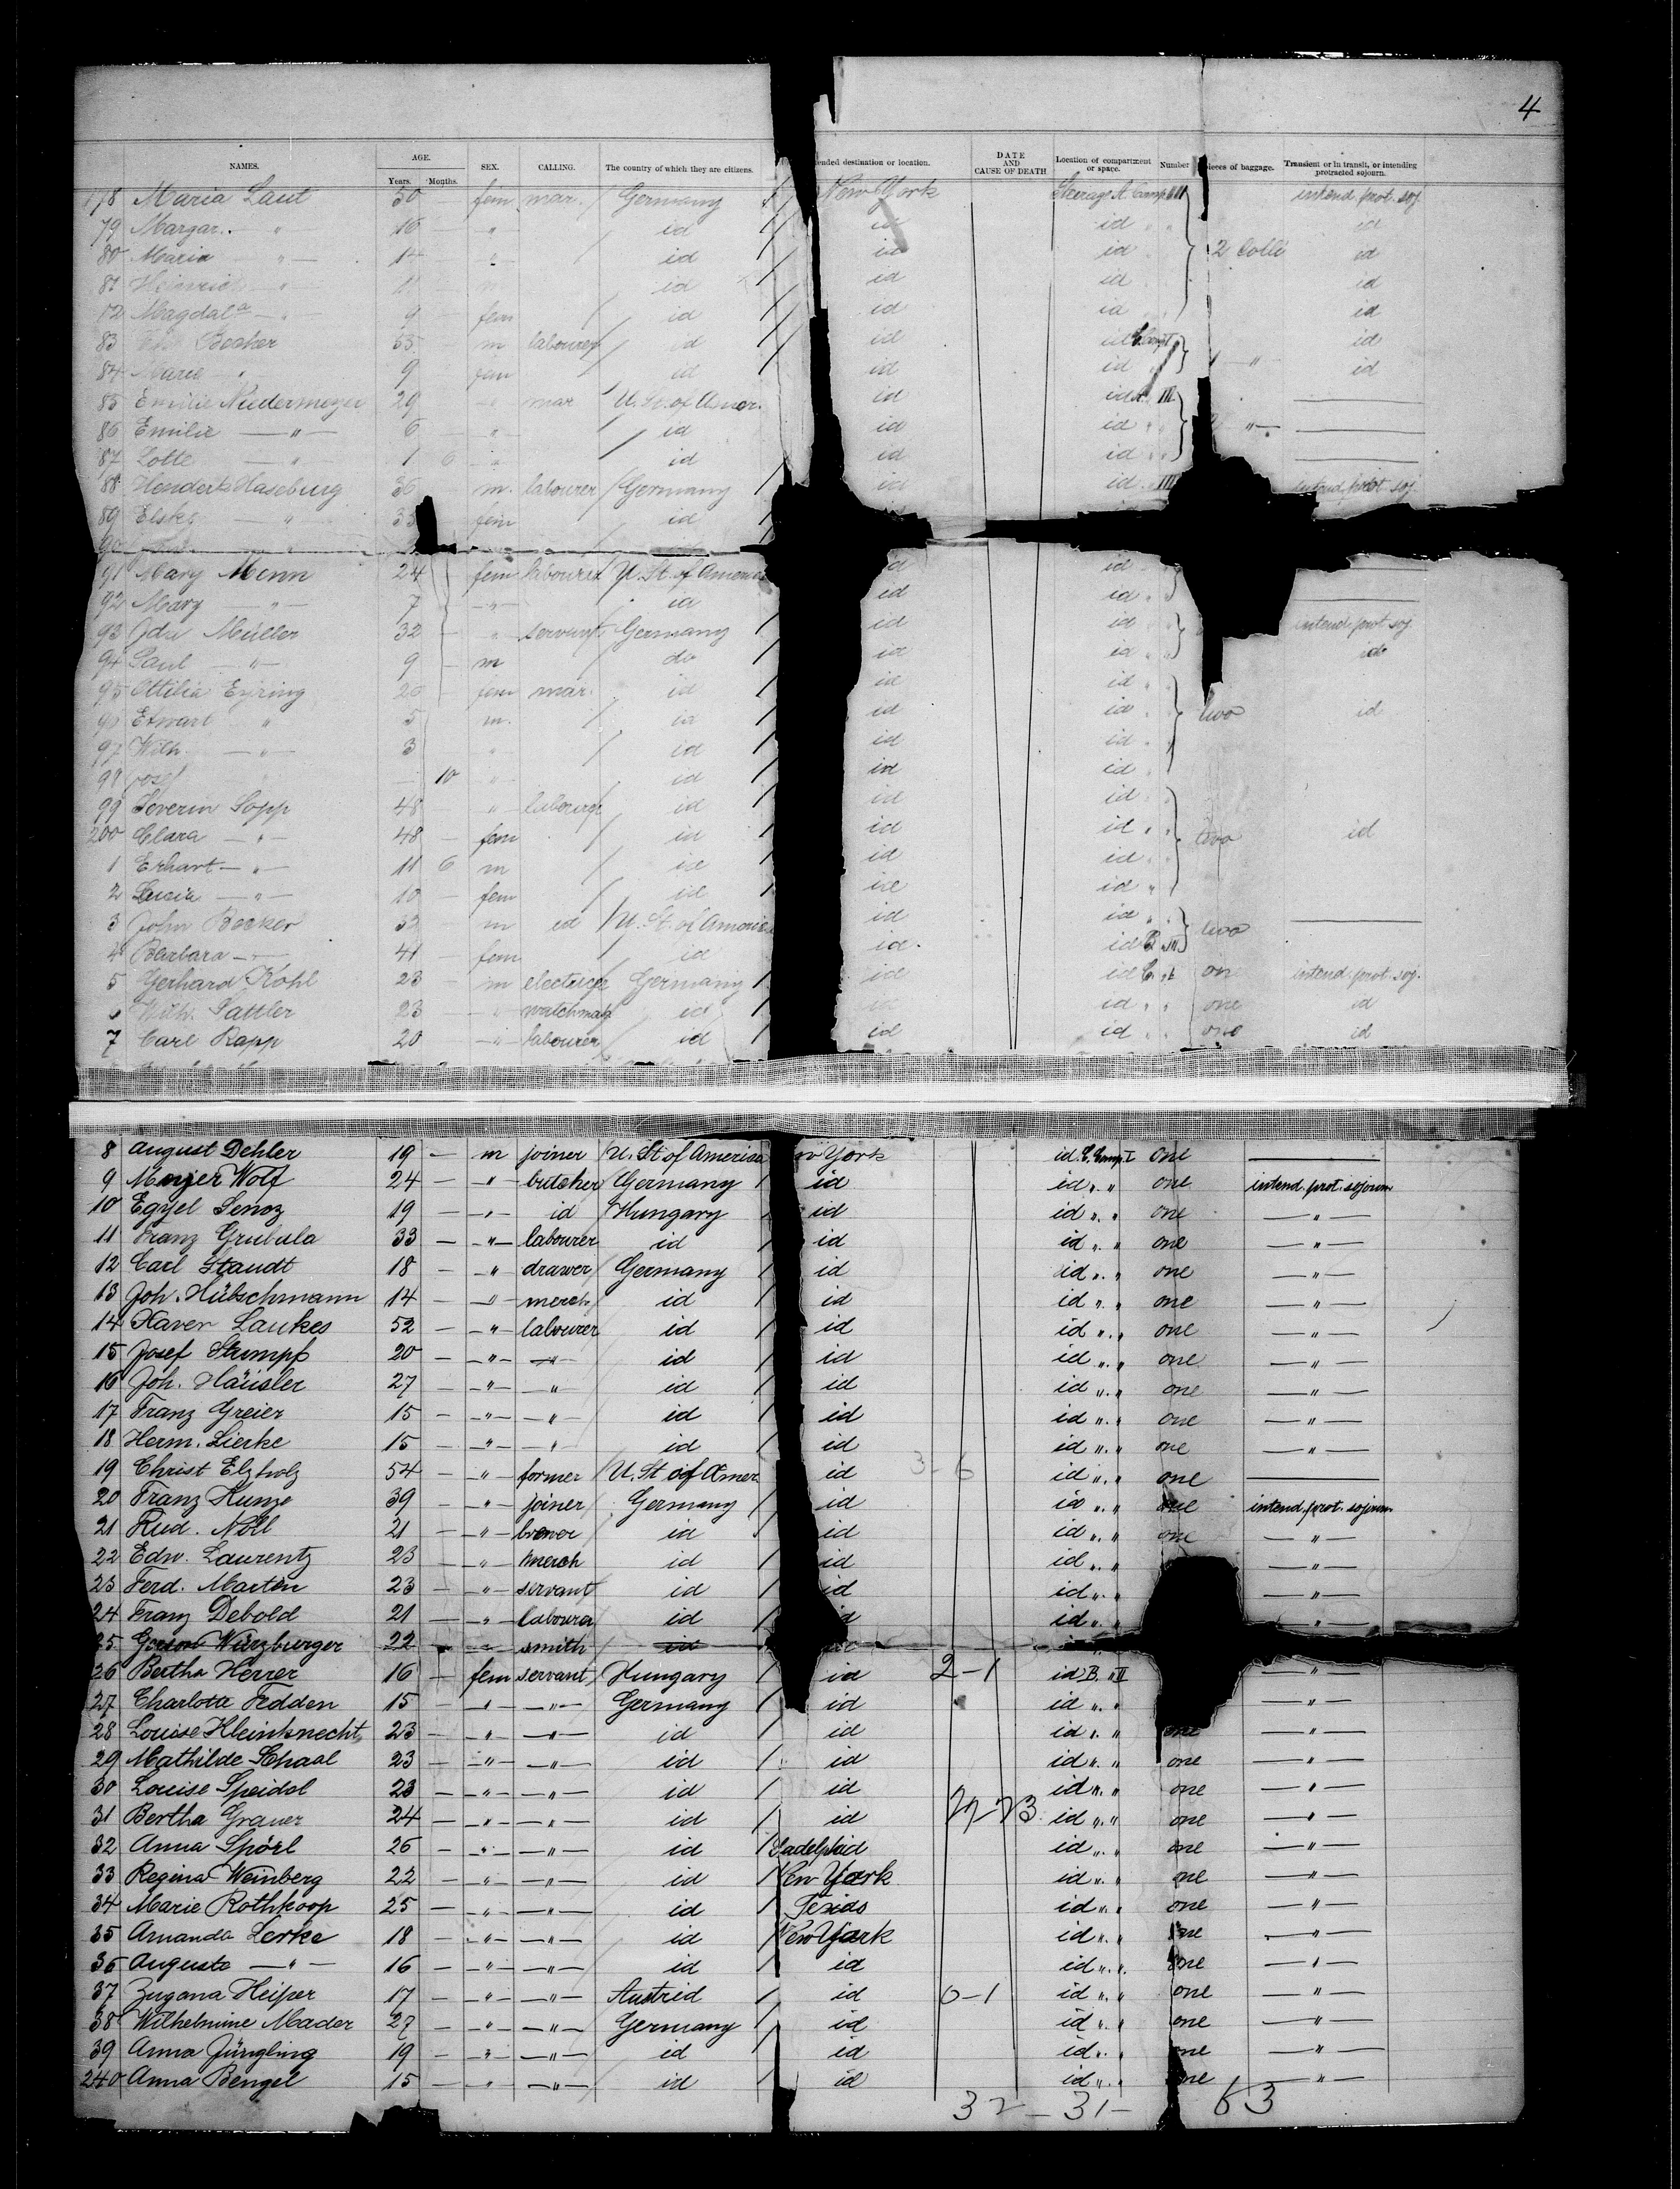 4
NAMES. AGE. Years. Months. SEX. CALLING. The country of which they are citizens. ended destination or location. DATE AND CAUSE OF DEATH Location of compartment or space. Number pieces of baggage. Transient or in transit, or intending protracted sojourn.
178 Maria Laut 30 fem mar. Germany New York Steerage A Comp III intend prot. soj
79 Margar. " 16 " id id id " id
80 Maria " 14 " id id id 2 Colli id
81 Heinrich " 11 m id id id id
Magdalª " 9 fem id id id id
83 Becker 35 m labourer id id id Comp I id
84 Marie " 9 fem id id id " id
85 Emilie Niedermeyer 29 " mar U. St. of Amer. id id III —
86 Emilie — " — 6 " id id id " " —
87 Lotte " 1 6 " id id id —
88 Hendrk Haseburg 36 m. labourer Germany id id III intend prot soj
89 Elske " 33 fem id
90
91 Mary Menn 24 fem U. St. of America id id —
92 Mary — " — 7 — " — id id id —
93 Ida Müller 32 — " servant Germany id id intend prot soj
94 Paul — " — 9 — m do id id id
95 Ottilia 20 fem mar. id id id
96 Edwart " 5 m. id id id two id
97 Wilh. — " — 3 " id id id
98 Josef 10 " id id id
99 Severin Sopp 48 " labourer id id id
200 Clara — " — 48 — fem id id id two id
1 Erhart — " — 11 6 m id id id
2 Lucia — " — 10 — fem id id id
3 John Becker 53 — m id U. St. of America id id two —
4 Barbara — " — 41 — fem id id. id B. III
5 Gerhard Kohl 23 — m Germany id id C. I one intend. prot. soj.
6 Wilh. Sattler 23 " watchman id id id one id
7 Carl Rapp 20 — " — labourer id id id one id
8 August Dehler 19 — m joiner U. St of America w York id C. Comp. I one —
9 Meyer Wolf 24 — " — butcher Germany id id " " one intend. prot. sojourn
10 Egyel Senoz 19 — " — id Hungary id id " " one — " —
11 Franz Grubula 33 — " — labourer id id id " " one — " —
12 Carl Staudt 18 — " drawer Germany id id " " one — " —
13 Joh. Hübschmann 14 — " — merch id id id " " one — " —
14 Xaver Laukes 52 — " — labourer id id id " " one — " —
15 Josef Stumpf 20 — " — — " — id id id " " one — " —
16 Joh. Häusler 27 — " — — " — id id id " " one — " —
17 Franz Greier 15 — " — — " — id id id " " one — " —
18 Herm. Lierke 15 — " — — " — id id id " " one — " —
19 Christ Elzholz 54 — " — former U. St of Amer id 3-6 id " " one —
20 Franz Kunze 39 — " — joiner Germany id id " " one intend. prot. sojourn
21 Rud. Noll 21 — " — brewer id id id " " one — " —
22 Edw. Laurentz 23 — " — merch id id id " " — " —
23 Ferd. Martin 23 — " — servant id id id " " — " —
24 Franz Debold 21 — " — labourer id id id " " — " —
25 Würzburger 22 " smith id
26 Bertha Herrer 16 — fem servant Hungary id 2-1 id B. " II — " —
27 Charlotte Fedden 15 — " — — " — Germany id id " " — " —
28 Louise Kleinknecht 23 — " — — " — id id id " " one — " —
29 Mathilde Schaal 23 — " — — " — id id id " " one — " —
30 Louise Speidel 23 — " — — " — id id id " " one — " —
31 Bertha Grauer 24 — " — — " — id id id " " one — " —
32 Anna Spörl 26 — " — — " — id id " " one — " —
33 Regina Weinberg 22 — " — — " — id New York id " " one — " —
34 Marie Rothkoop 25 — " — — " — id Texas id " " one — " —
35 Amanda Lerke 18 — " — — " — id New York id " " one — " —
36 Auguste — " — 16 — " — — " — id id id " " one — " —
37 Zugana Heiper 17 — " — — " — Austria id 0-1 id " " one — " —
38 Wilhelmine Mader 27 — " — — " — Germany id id " " one — " —
39 Anna Jüngling 19 — " — — " — id id id " " one — " —
240 Anna Bengel 15 — " — — " — id id id " " one — " —
32 - 31 - 63